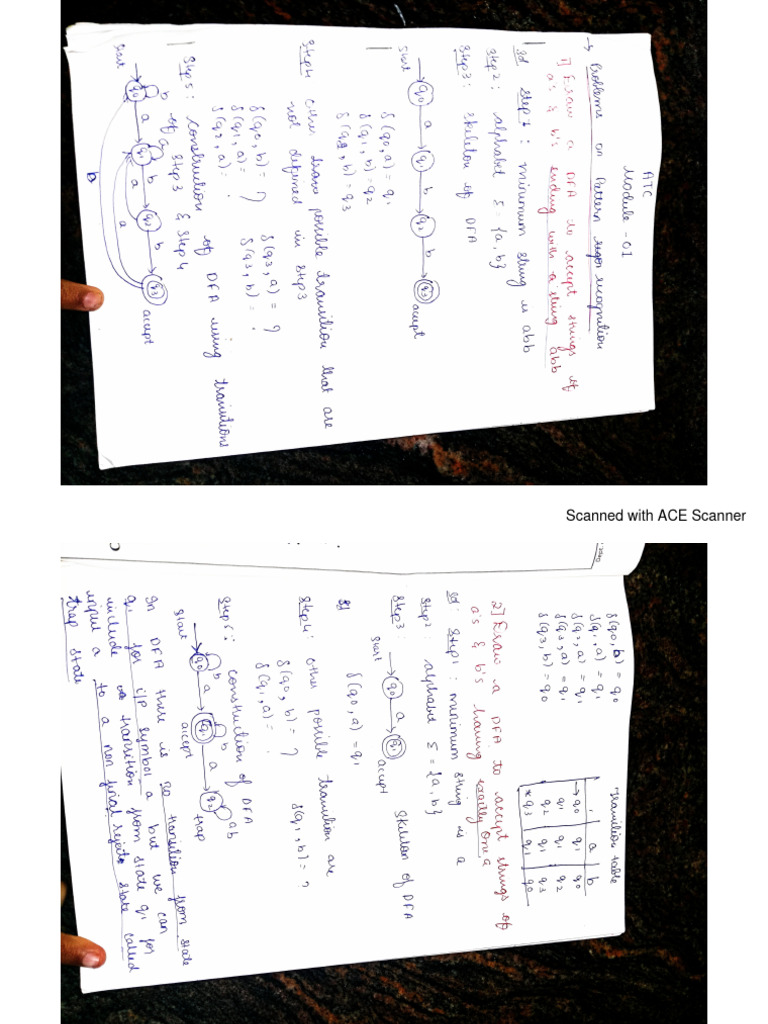 ATC
Module - 01
→ Problems on Pattern recognition
1] Draw a DFA to accept strings of
a's & b's ending with a string abb
Step 1 : minimum string is abb
Step 2 : alphabet Σ = {a, b}
Step 3 : skeleton of DFA
start
q0 a q1 b q2 b q3
accept
δ(q0, a) = q1
δ(q1, b) = q2
δ(q2, b) = q3
Step 4 other draw possible transition that are
not defined in step 3
δ(q0, b) = ? δ(q3, a) = ?
δ(q1, a) = ? δ(q3, b) = ?
δ(q2, a) = ?
Step 5 : construction of DFA using transitions
of step 3 & step 4
b a
start q0 a q1 b q2 b q3
accept
a a
b
Scanned with ACE Scanner
δ(q0, b) = q0
δ(q1, a) = q1
δ(q2, a) = q1
δ(q3, a) = q1
δ(q3, b) = q0
Transition table
a b
→ q0 q1 q0
q1 q1 q2
q2 q1 q3
* q3 q1 q0
2] Draw a DFA to accept strings of
a's & b's having exactly one a
Step 1 : minimum string is a
Step 2 : alphabet Σ = {a, b}
Step 3 : Skeleton of DFA
start q0 a q1
accept
δ(q0, a) = q1
Step 4 : other possible transition are
δ(q0, b) = ? δ(q1, b) = ?
δ(q1, a) = ?
Step 5 : construction of DFA
b b ab
start q0 a q1 a q2
accept trap
In DFA there is no transition from state
q1 for i/p symbol a but we can
include transition from state q1 for
input a to a non final reject state called
trap state